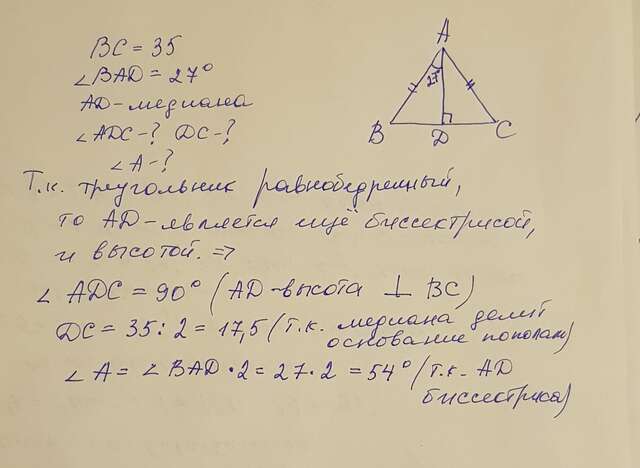 BC = 35
∠BAD = 27°
AD - медиана
∠ADC - ? DC - ?
∠A - ?
A
27°
B
D
C
Т.к. треугольник равнобедренный,
то AD - является ещё биссектрисой,
и высотой. ⇒
∠ ADC = 90° (AD - высота ⊥ BC)
DC = 35 : 2 = 17,5 (т.к. медиана делит
основание пополам)
∠ A = ∠ BAD · 2 = 27 · 2 = 54° (т.к. AD
биссектриса)